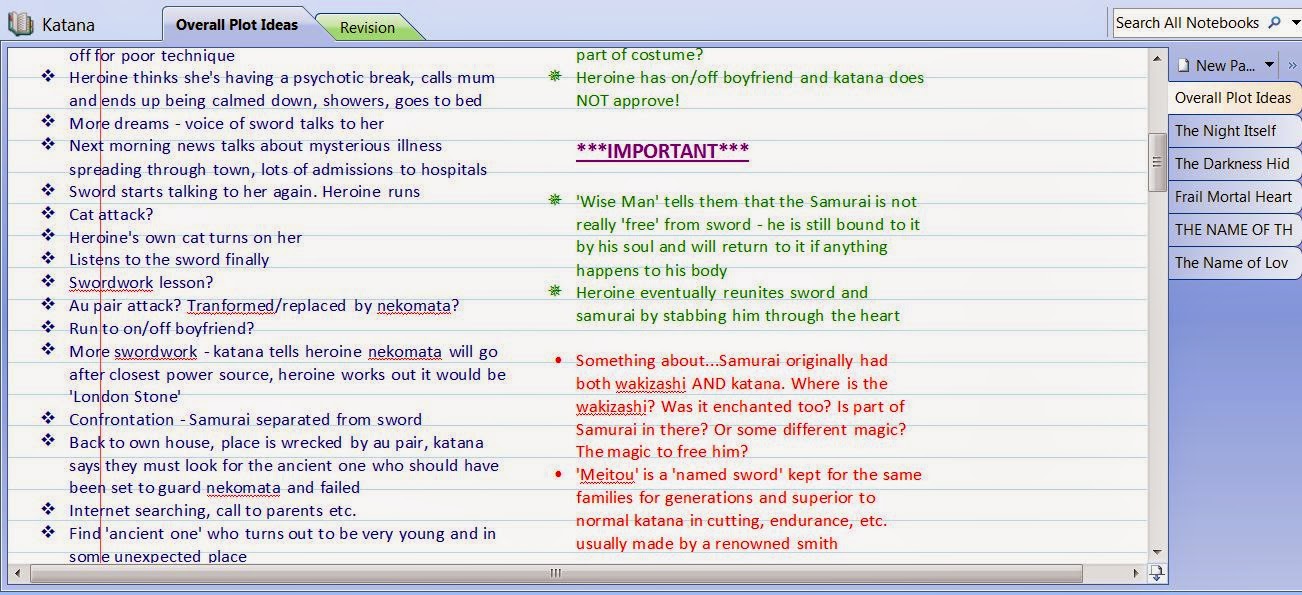 Katana
Overall Plot Ideas
Revision
Search All Notebooks
off for poor technique
Heroine thinks she's having a psychotic break, calls mum
and ends up being calmed down, showers, goes to bed
More dreams - voice of sword talks to her
Next morning news talks about mysterious illness
spreading through town, lots of admissions to hospitals
Sword starts talking to her again. Heroine runs
Cat attack?
Heroine's own cat turns on her
Listens to the sword finally
Swordwork lesson?
Au pair attack? Tranformed/replaced by nekomata?
Run to on/off boyfriend?
More swordwork - katana tells heroine nekomata will go
after closest power source, heroine works out it would be
'London Stone'
Confrontation - Samurai separated from sword
Back to own house, place is wrecked by au pair, katana
says they must look for the ancient one who should have
been set to guard nekomata and failed
Internet searching, call to parents etc.
Find 'ancient one' who turns out to be very young and in
some unexpected place
part of costume?
Heroine has on/off boyfriend and katana does
NOT approve!
***IMPORTANT***
'Wise Man' tells them that the Samurai is not
really 'free' from sword - he is still bound to it
by his soul and will return to it if anything
happens to his body
Heroine eventually reunites sword and
samurai by stabbing him through the heart
Something about...Samurai originally had
both wakizashi AND katana. Where is the
wakizashi? Was it enchanted too? Is part of
Samurai in there? Or some different magic?
The magic to free him?
'Meitou' is a 'named sword' kept for the same
families for generations and superior to
normal katana in cutting, endurance, etc.
usually made by a renowned smith
New Pa...
Overall Plot Ideas
The Night Itself
The Darkness Hid
Frail Mortal Heart
THE NAME OF TH
The Name of Lov